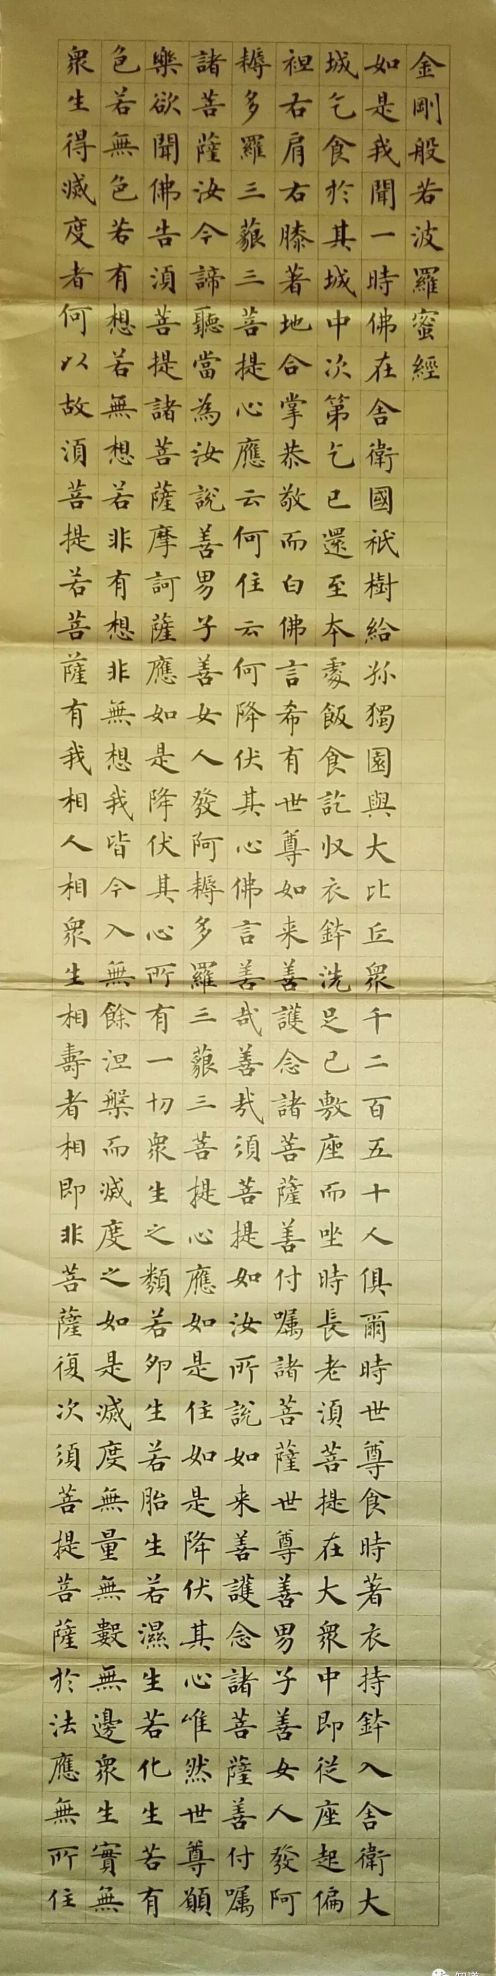 金剛般若波羅蜜經
如是我聞一時佛在舍衛國祇樹給孤獨園與大比丘衆千二百五十人俱爾時世尊食時著衣持鉢入舍衛大
城乞食於其城中次第乞已還至本處飯食訖收衣鉢洗足已敷座而坐時長老須菩提在大衆中即從座起偏
袒右肩右膝著地合掌恭敬而白佛言希有世尊如来善護念諸菩薩善付囑諸菩薩世尊善男子善女人發阿
耨多羅三藐三菩提心應云何住云何降伏其心佛言善哉善哉須菩提如汝所說如来善護念諸菩薩善付囑
諸菩薩汝今諦聽當為汝說善男子善女人發阿耨多羅三藐三菩提心應如是住如是降伏其心唯然世尊願
樂欲聞佛告須菩提諸菩薩摩訶薩應如是降伏其心所有一切衆生之類若卵生若胎生若濕生若化生若有
色若無色若有想若無想若非有想非無想我皆令入無餘涅槃而滅度之如是滅度無量無數無邊衆生實無
衆生得滅度者何以故須菩提若菩薩有我相人相衆生相壽者相即非菩薩復次須菩提菩薩於法應無所住